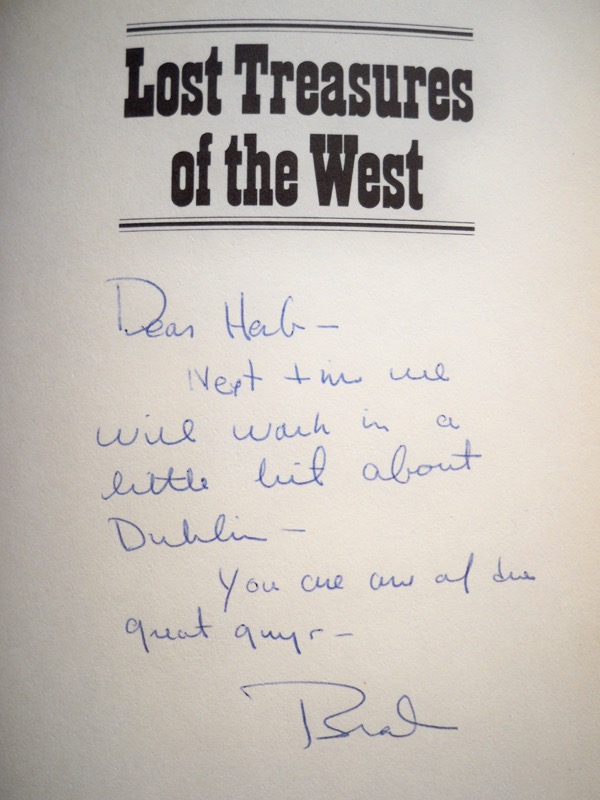 Lost Treasures
of the West
Dear Herb —
Next time we
will work in a
little bit about
Dublin —
You are one of the
great guys —
Brad